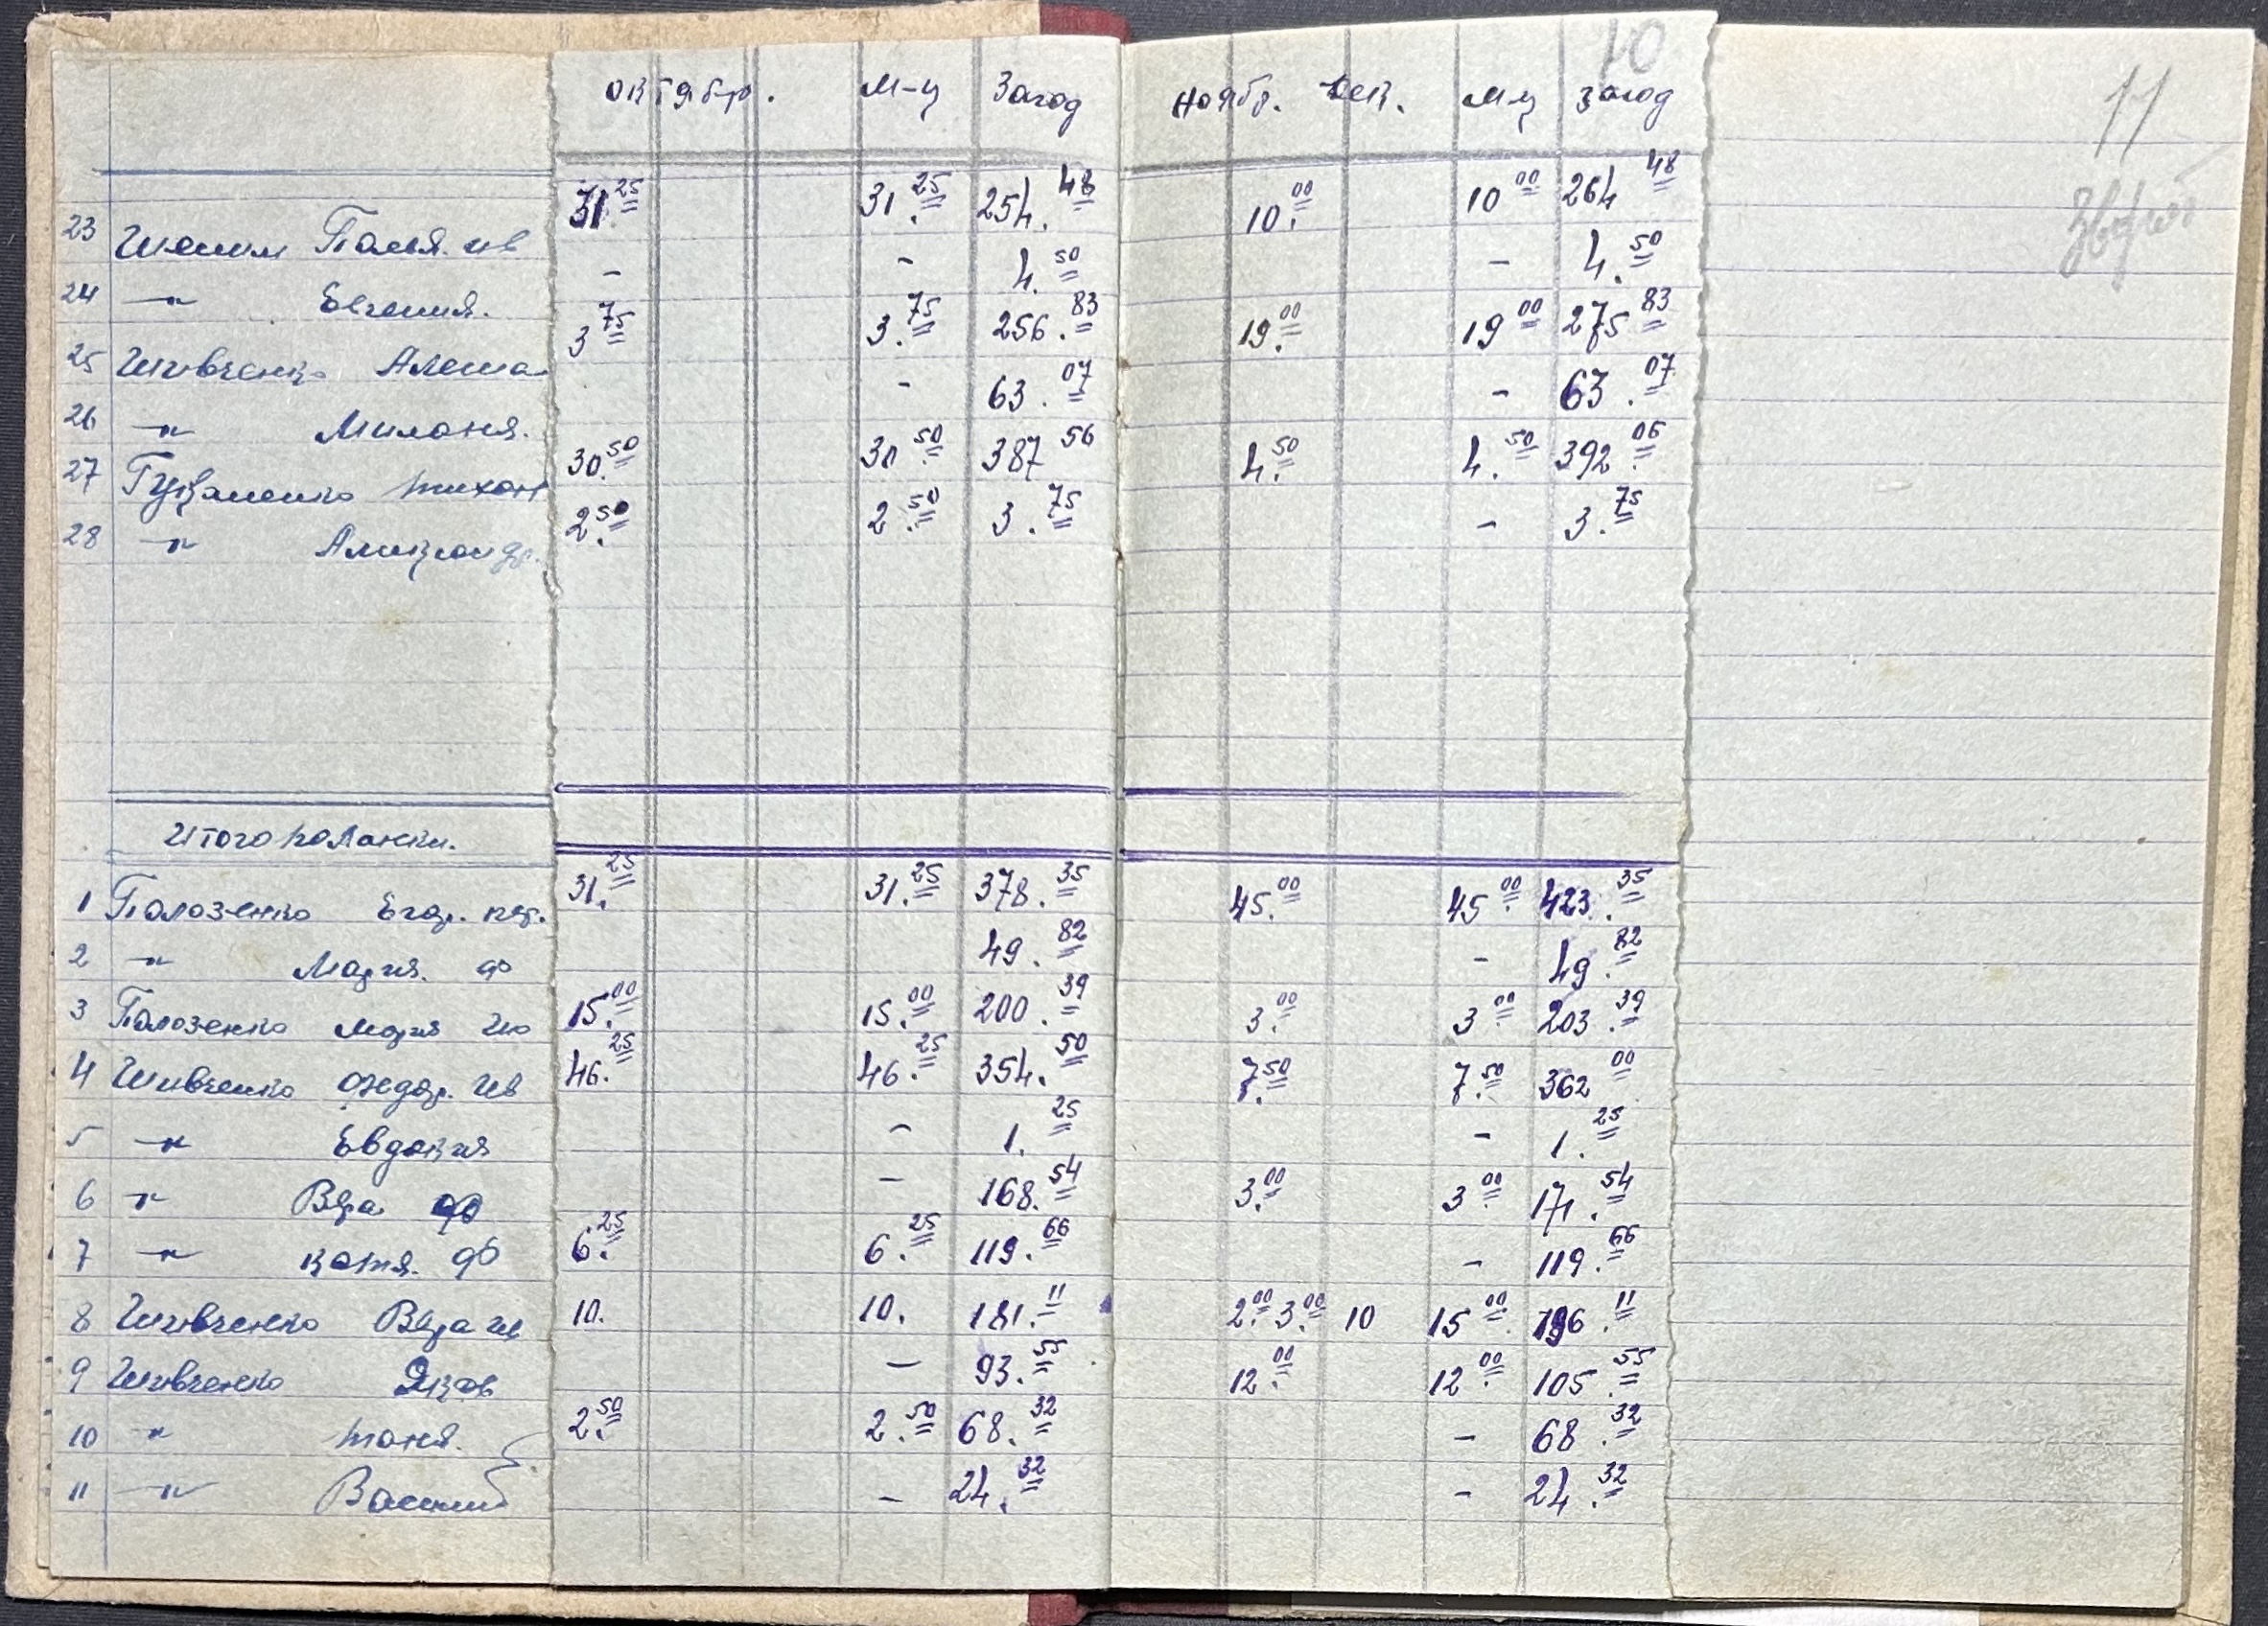 10
11
октябрь. М-ц Загод Ноябр. Дек. М-ц Загод
23 Поля. ив 31.25 31.25 254.48 10.00 10 00 264 48
24 –"– Евгения. – – 4.50 – 4.50
25 Шивченко Алеша 3 75 3.75 256.83 19.00 19 00 275 83
26 –"– Миланя. – 63.07 – 63.07
27 Тихон 30.50 30 50 387 56 4.50 4.50 392.06
28 –"– Александр. 2.50 2.50 3.75 – 3.75
Итого
1 Полозенко Егор. 31.25 31.25 378.35 45.00 45 00 423.35
2 –"– Мария. ф 49.82 – 49.82
3 Полозенко Мария 15.00 15.00 200.39 3.00 3 00 203.39
4 Шивченко Федор. ив 46.25 46.25 354.50 7.50 7.50 362 00
5 –"– Евдокия – 1.25 – 1.25
6 –"– Вера ф – 168.54 3.00 3 00 171.54
7 –"– Катя. ф 6.25 6.25 119.66 – 119.66
8 Шивченко Вера ив 10. 10. 181.11 2.00 3.00 10 15 00 196.11
9 Шивченко Яков – 93.55 12.00 12.00 105.55
10 –"– Таня. 2.50 2.50 68.32 – 68.32
11 –"– Василий – 24.32 – 24.32